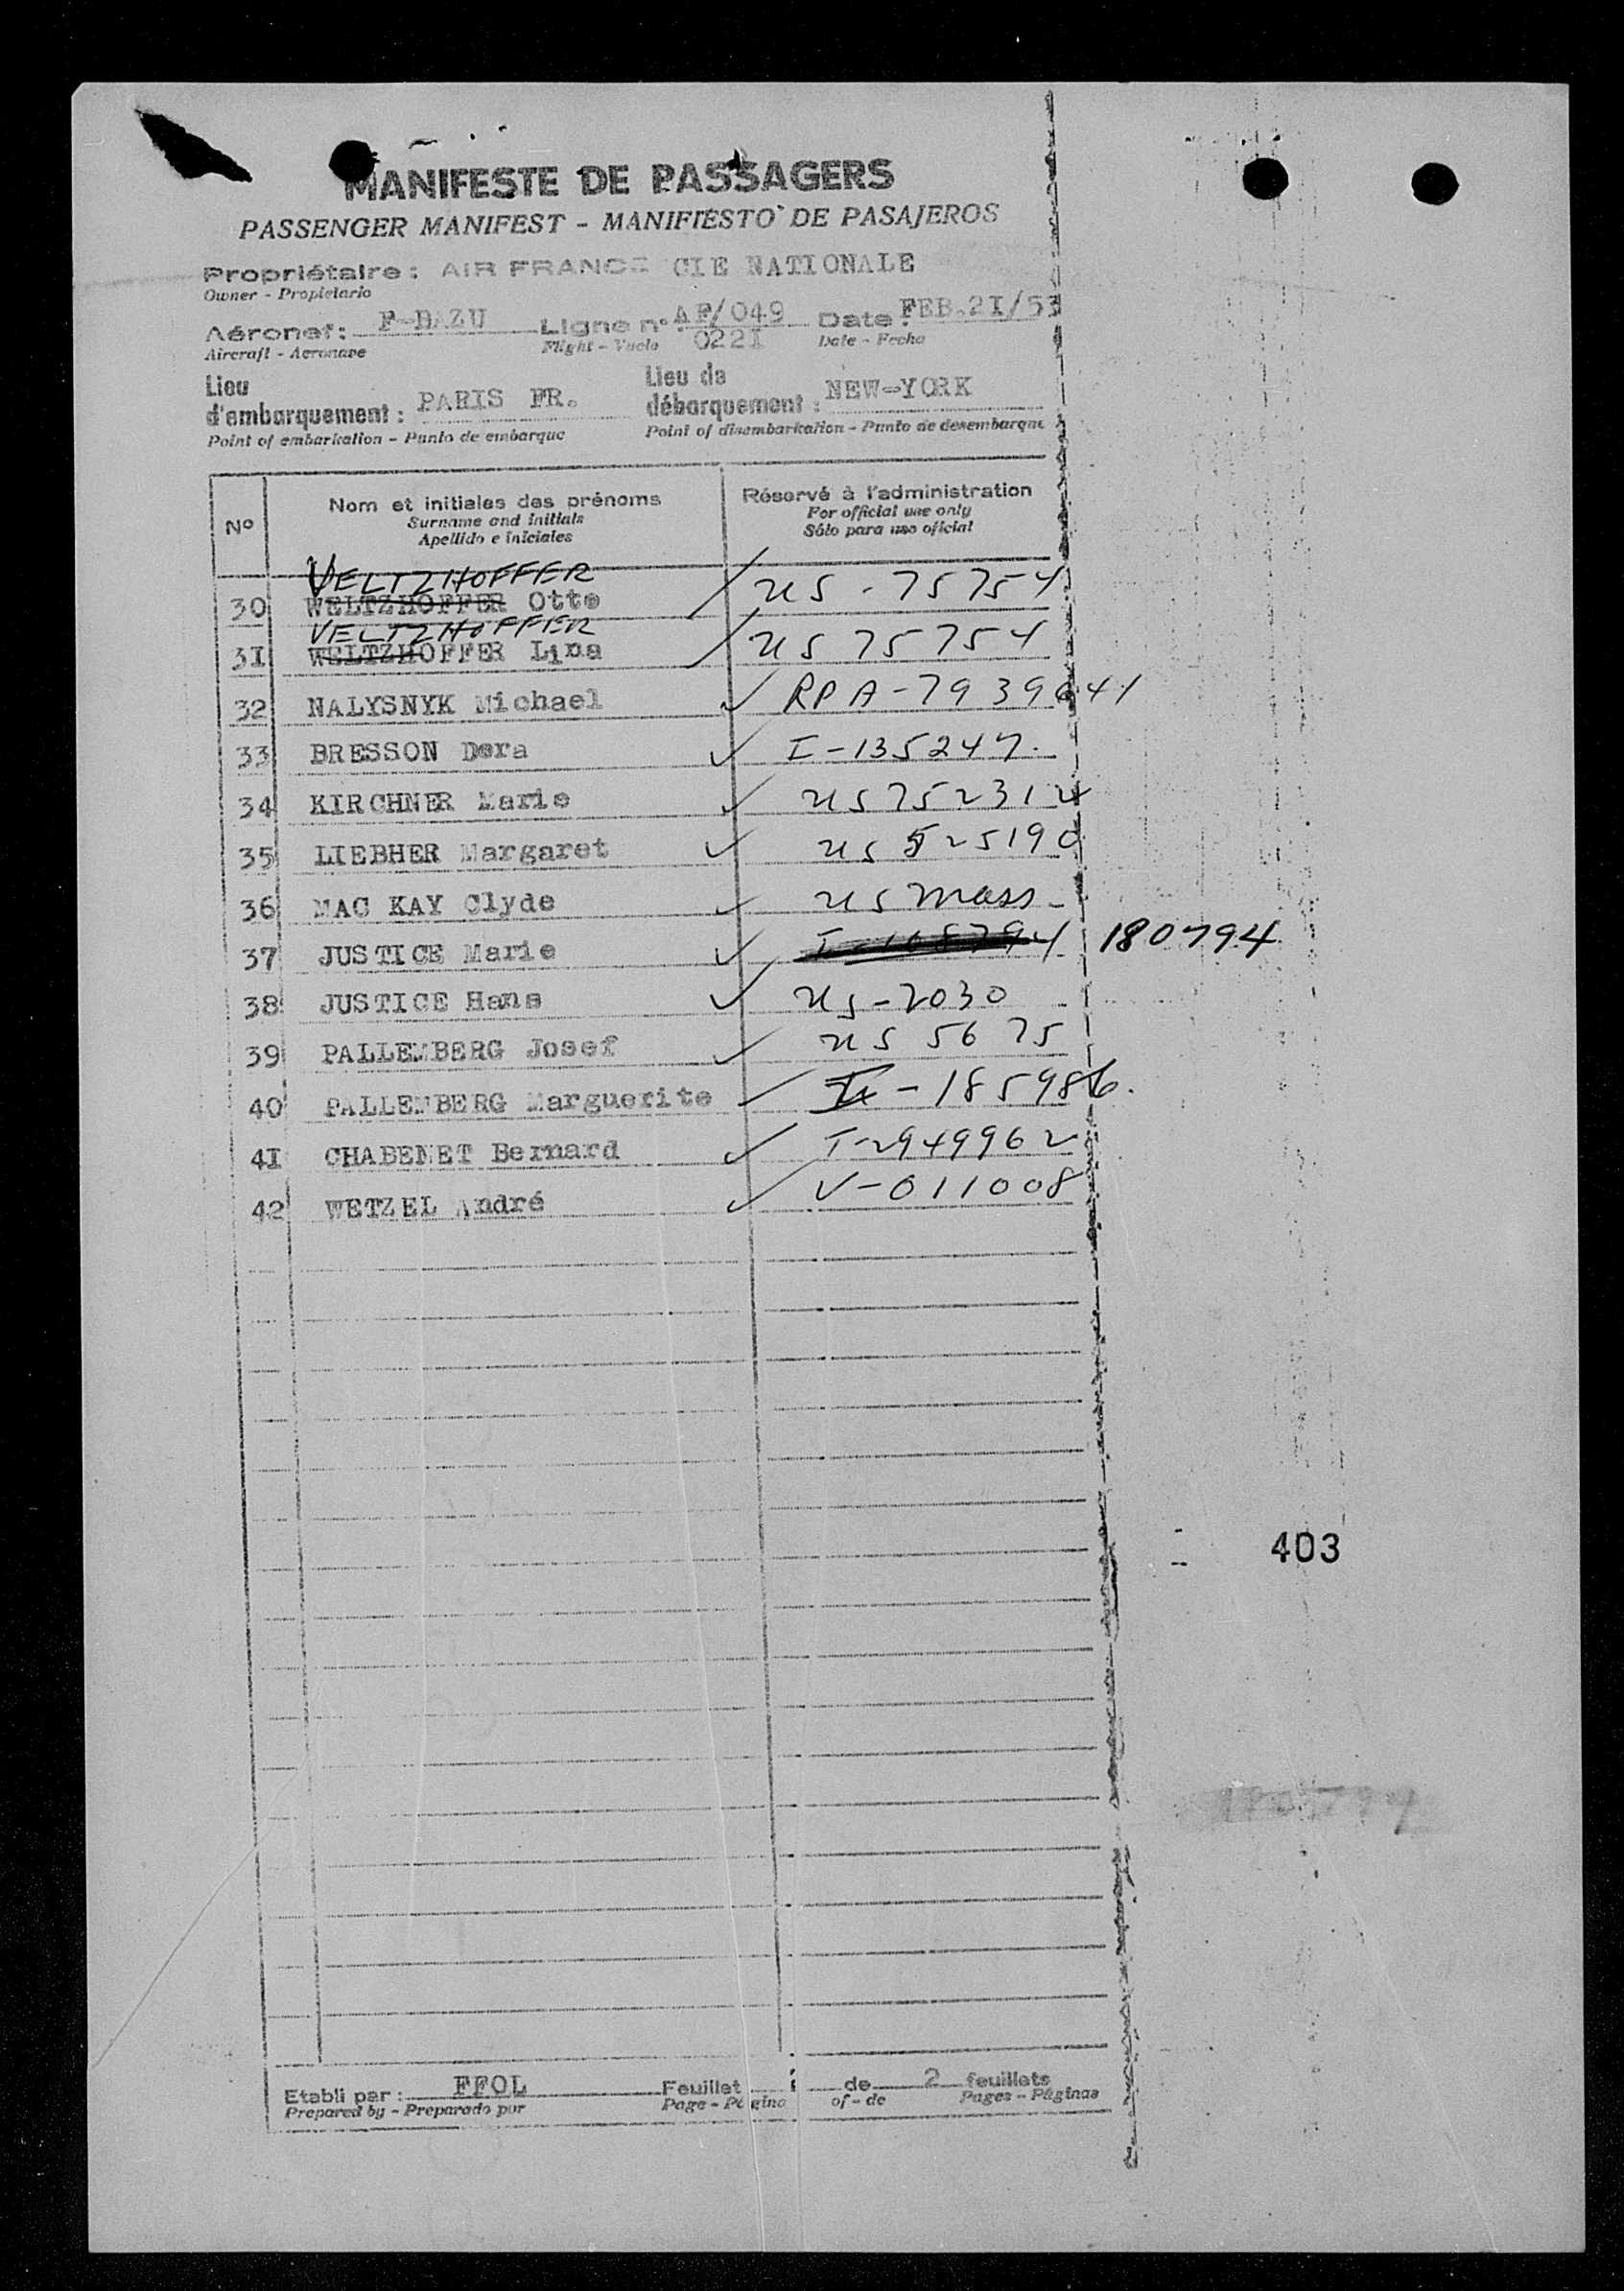 MANIFESTE DE PASSAGERS
PASSENGER MANIFEST - MANIFIESTO DE PASAJEROS
Propriétaire : AIR FRANCE CIE NATIONALE
Owner - Propietario
Aéronef : F-BAZU Ligne n° AF/049 Date : FEB.2I/53
Aircraft - Aeronave Flight - Vuelo 022I Date - Fecha
Lieu d'embarquement : PARIS FR. Lieu de débarquement : NEW-YORK
Point of embarkation - Punto de embarque Point of disembarkation - Punto de desembarque
N° Nom et initiales des prénoms Réservé à l'administration
Surname and initials For official use only
Apellido e iniciales Sólo para uso oficial
VELTZHOFFER
30 WELTZHOFFER Otto US - 75754
VELTZHOFFER
3I WELTZHOFFER Lina US 75754
32 NALYSNYK Michael RPA-7939641
33 BRESSON Dora I-135247.
34 KIRCHNER Marie US 752312
35 LIEBHER Margaret US 525190
36 MAC KAY Clyde US Mass -
37 JUSTICE Marie 180794
38 JUSTICE Hans US-2030
39 PALLEMBERG Josef US 5675
40 PALLEMBERG Marguerite - 185986.
4I CHABENET Bernard I-2949962
42 WETZEL André V-011008
403
Etabli par : FFOL Feuillet de 2 feuillets
Prepared by - Preparado por Page - Página of - de Pages - Páginas